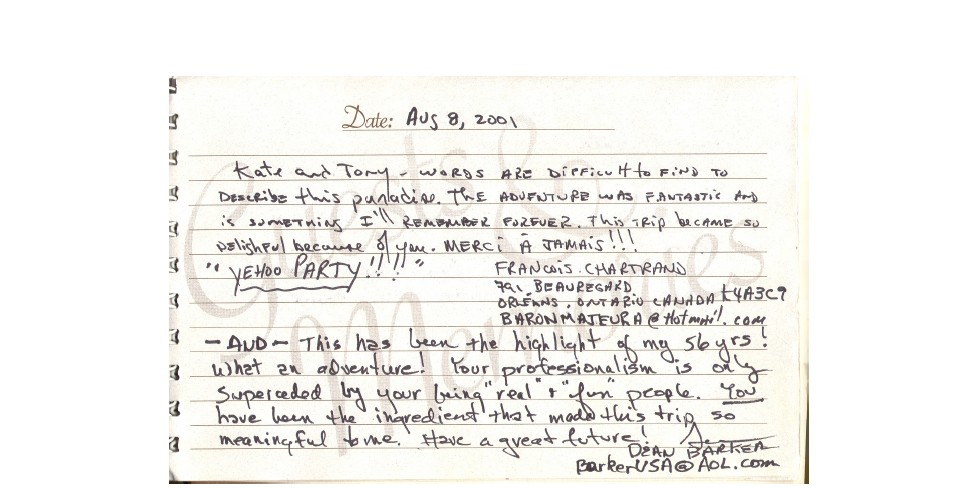 Guests & Memories
Date: Aug 8, 2001
Kate and Tony - WORDS ARE DIFFICUlt to FIND TO
DESCRIBE this paradise. THE ADVENTURE WAS FANTASTIC AND
is SOMETHING I'll REMEMBER FOREVER. This TRIP became so
Delightful because of you. MERCI À JAMAIS!!!
"YEHOO PARTY!!!!"
FRANCOIS. CHARTRAND
791, BEAUREGARD
ORLÉANS. ONTARIO CANADA K4A3C9
BARONMAJEURA@Hotmail.com
- AND - This has been the highlight of my 56 yrs!
What an adventure! Your professionalism is only
Superceded by your being "real" + "fun" people. You
have been the ingredient that made this trip so
meaningful to me. Have a great future!
DEAN BARKER
BarkerUSA@AOL.com